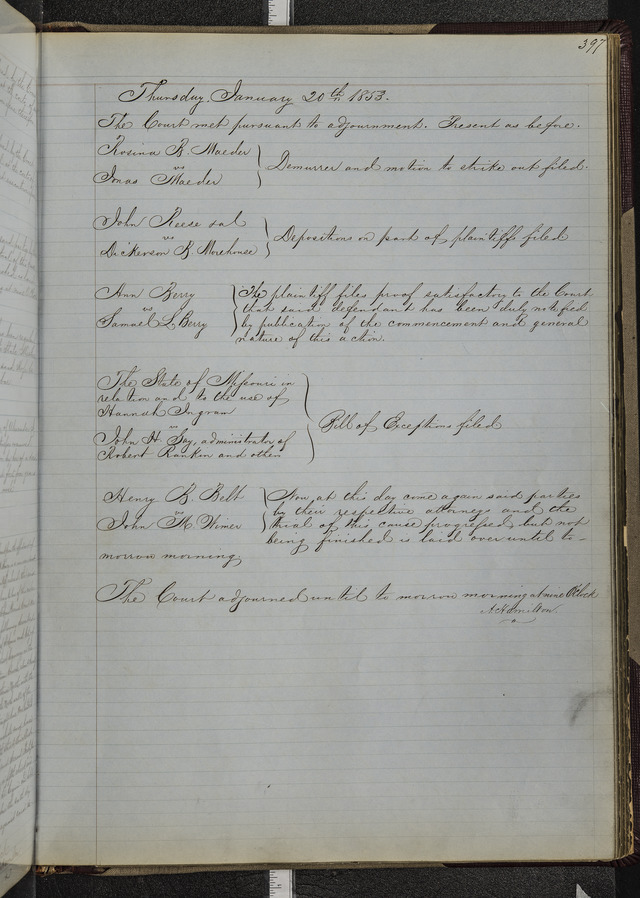 397
Thursday, January 20th 1853.
The Court met pursuant to adjournment. Present as before.
Rosina R. Maeder
vs
Jonas Maeder
Demurrer and motion to strike out filed.
John Reese et al
vs
Dickerson B. Morehouse
Depositions on part of plaintiffs filed
Ann Berry
vs
Samuel L Berry
The plaintiff files proof satisfactory to the Court
that said defendant has been duly notified
by publication of the commencement and general
nature of this action.
The State of Missouri in
relation and to the use of
Hannah Ingram
vs
John H. Gay, administrator of
Robert Rankin and others
Bill of Exceptions filed
Henry B. Belt
vs
John M Wimer
Now at this day come again said parties
by their respective attorneys and the
trial of this cause progressed, but not
being finished is laid over until to-
morrow morning.
The Court adjourned until to morrow morning at nine O'Clock
A. Hamilton.